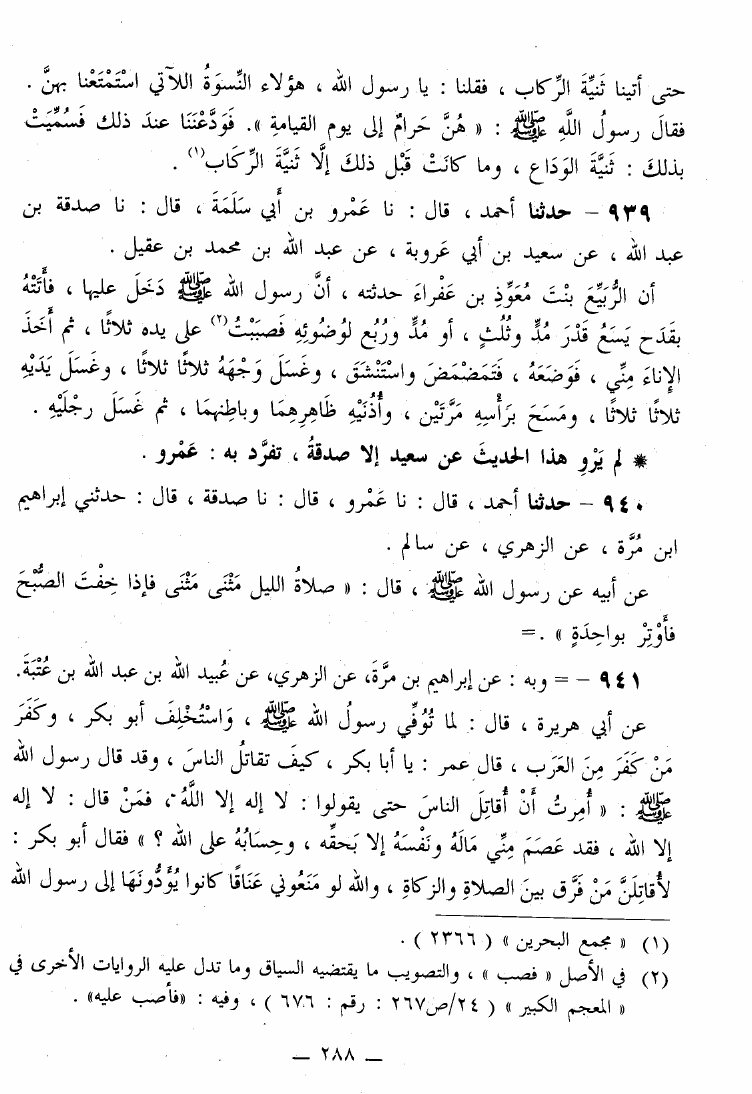 حتى أتينا ثَنِيَّةَ الرِّكاب ، فقلنا : يا رسول الله ، هؤلاء النِّسوَةُ اللاَّتي اسْتَمْتَعْنا بهنَّ .
فقالَ رسولُ اللَّهِ ﷺ : « هُنَّ حَرامٌ إلى يوم القيامةِ ». فَوَدَّعْنَنا عندَ ذلك فَسُمِّيَتْ
بذلكَ : ثَنِيَّةَ الوَدَاع ، وما كانَتْ قَبْل ذلكَ إلَّا ثَنِيَّةَ الرِّكاب(١) .
٩٣٩ – حدثنا أحمد ، قال : نا عَمْرو بن أَبي سَلَمَةَ ، قال : نا صدقة بن
عبد الله ، عن سعيد بن أبي عَروبة ، عن عبد الله بن محمد بن عقيل .
أن الرُّبَيِّعَ بنْتَ مُعَوِّذِ بن عَفْراءَ حدثته ، أنَّ رسول الله ﷺ دَخَلَ عليها ، فأَتَتْهُ
بقَدَح يَسَعُ قَدْرَ مُدٍّ وثُلُثٍ ، أو مُدٍّ ورُبُع لوُضُوئِهِ فَصبَبْتُ(٢) على يده ثلاثًا ، ثم أَخَذَ
الإناءَ مِنِّي ، فَوَضَعَهُ ، فَتَمَضْمَضَ واسْتَنْشَقَ ، وغَسَلَ وَجْهَهُ ثلاثًا ثلاثًا ، وغَسَلَ يَدَيْهِ
ثلاثًا ثلاثًا ، ومَسَحَ برَأْسِهِ مَرَّتَيْن ، وأُذُنَيْهِ ظاهِرِهِمَا وباطِنِهمَا ، ثم غَسَلَ رجْلَيْهِ .
* لم يَرْوِ هذا الحديثَ عن سعيد إلا صدقةُ ، تفرَّد به : عَمْرو .
٩٤٠ – حدثنا أحمد ، قال : نا عَمْرو ، قال : نا صدقة ، قال : حدثني إبراهيم
ابن مُرَّة ، عن الزهري ، عن سالم .
عن أبيه عن رسول الله ﷺ ، قال : « صلاةُ الليل مَثْنَى مَثْنَى فإذا خِفْتَ الصُّبْحَ
فأَوْتِرْ بواحِدَةٍ » .=
٩٤١ – = وبه : عن إبراهيم بن مرَّةَ، عن الزهري، عن عُبيد الله بن عبد الله بن عُتْبَةَ.
عن أبي هريرة ، قال : لما تُوُفِّي رسولُ الله ﷺ ، وَاسْتُخْلِفَ أبو بكر ، وكَفَرَ
مَنْ كَفَرَ مِنَ العَرَب ، قال عمر : يا أبا بكر ، كيفَ تقاتلُ الناسَ ، وقد قال رسول الله
ﷺ : « أُمِرتُ أَنْ أُقاتِلَ الناسَ حتى يقولوا : لا إله إلا اللَّهُ ، فمَنْ قال : لا إله
إلا الله ، فقد عَصَمَ مِنِّي مَالَهُ ونَفْسَهُ إلا بَحقِّه ، وحِسَابُهُ على الله ؟ » فقال أبو بكر :
لأُقاتِلَنَّ مَنْ فَرَّق بينَ الصلاةِ والزكاةِ ، والله لو مَنَعُوني عَنَاقًا كانوا يُؤَدُّونَهَا إلى رسول الله
(١) « مجمع البحرين » ( ٢٣٦٦ ) .
(٢) في الأصل « فصب » ، والتصويب ما يقتضيه السياق وما تدل عليه الروايات الأخرى في
« المعجم الكبير » ( ٢٤/ص٢٦٧ : رقم : ٦٧٦ ) ، وفيه : «فأصب عليه» .
– ٢٨٨ –